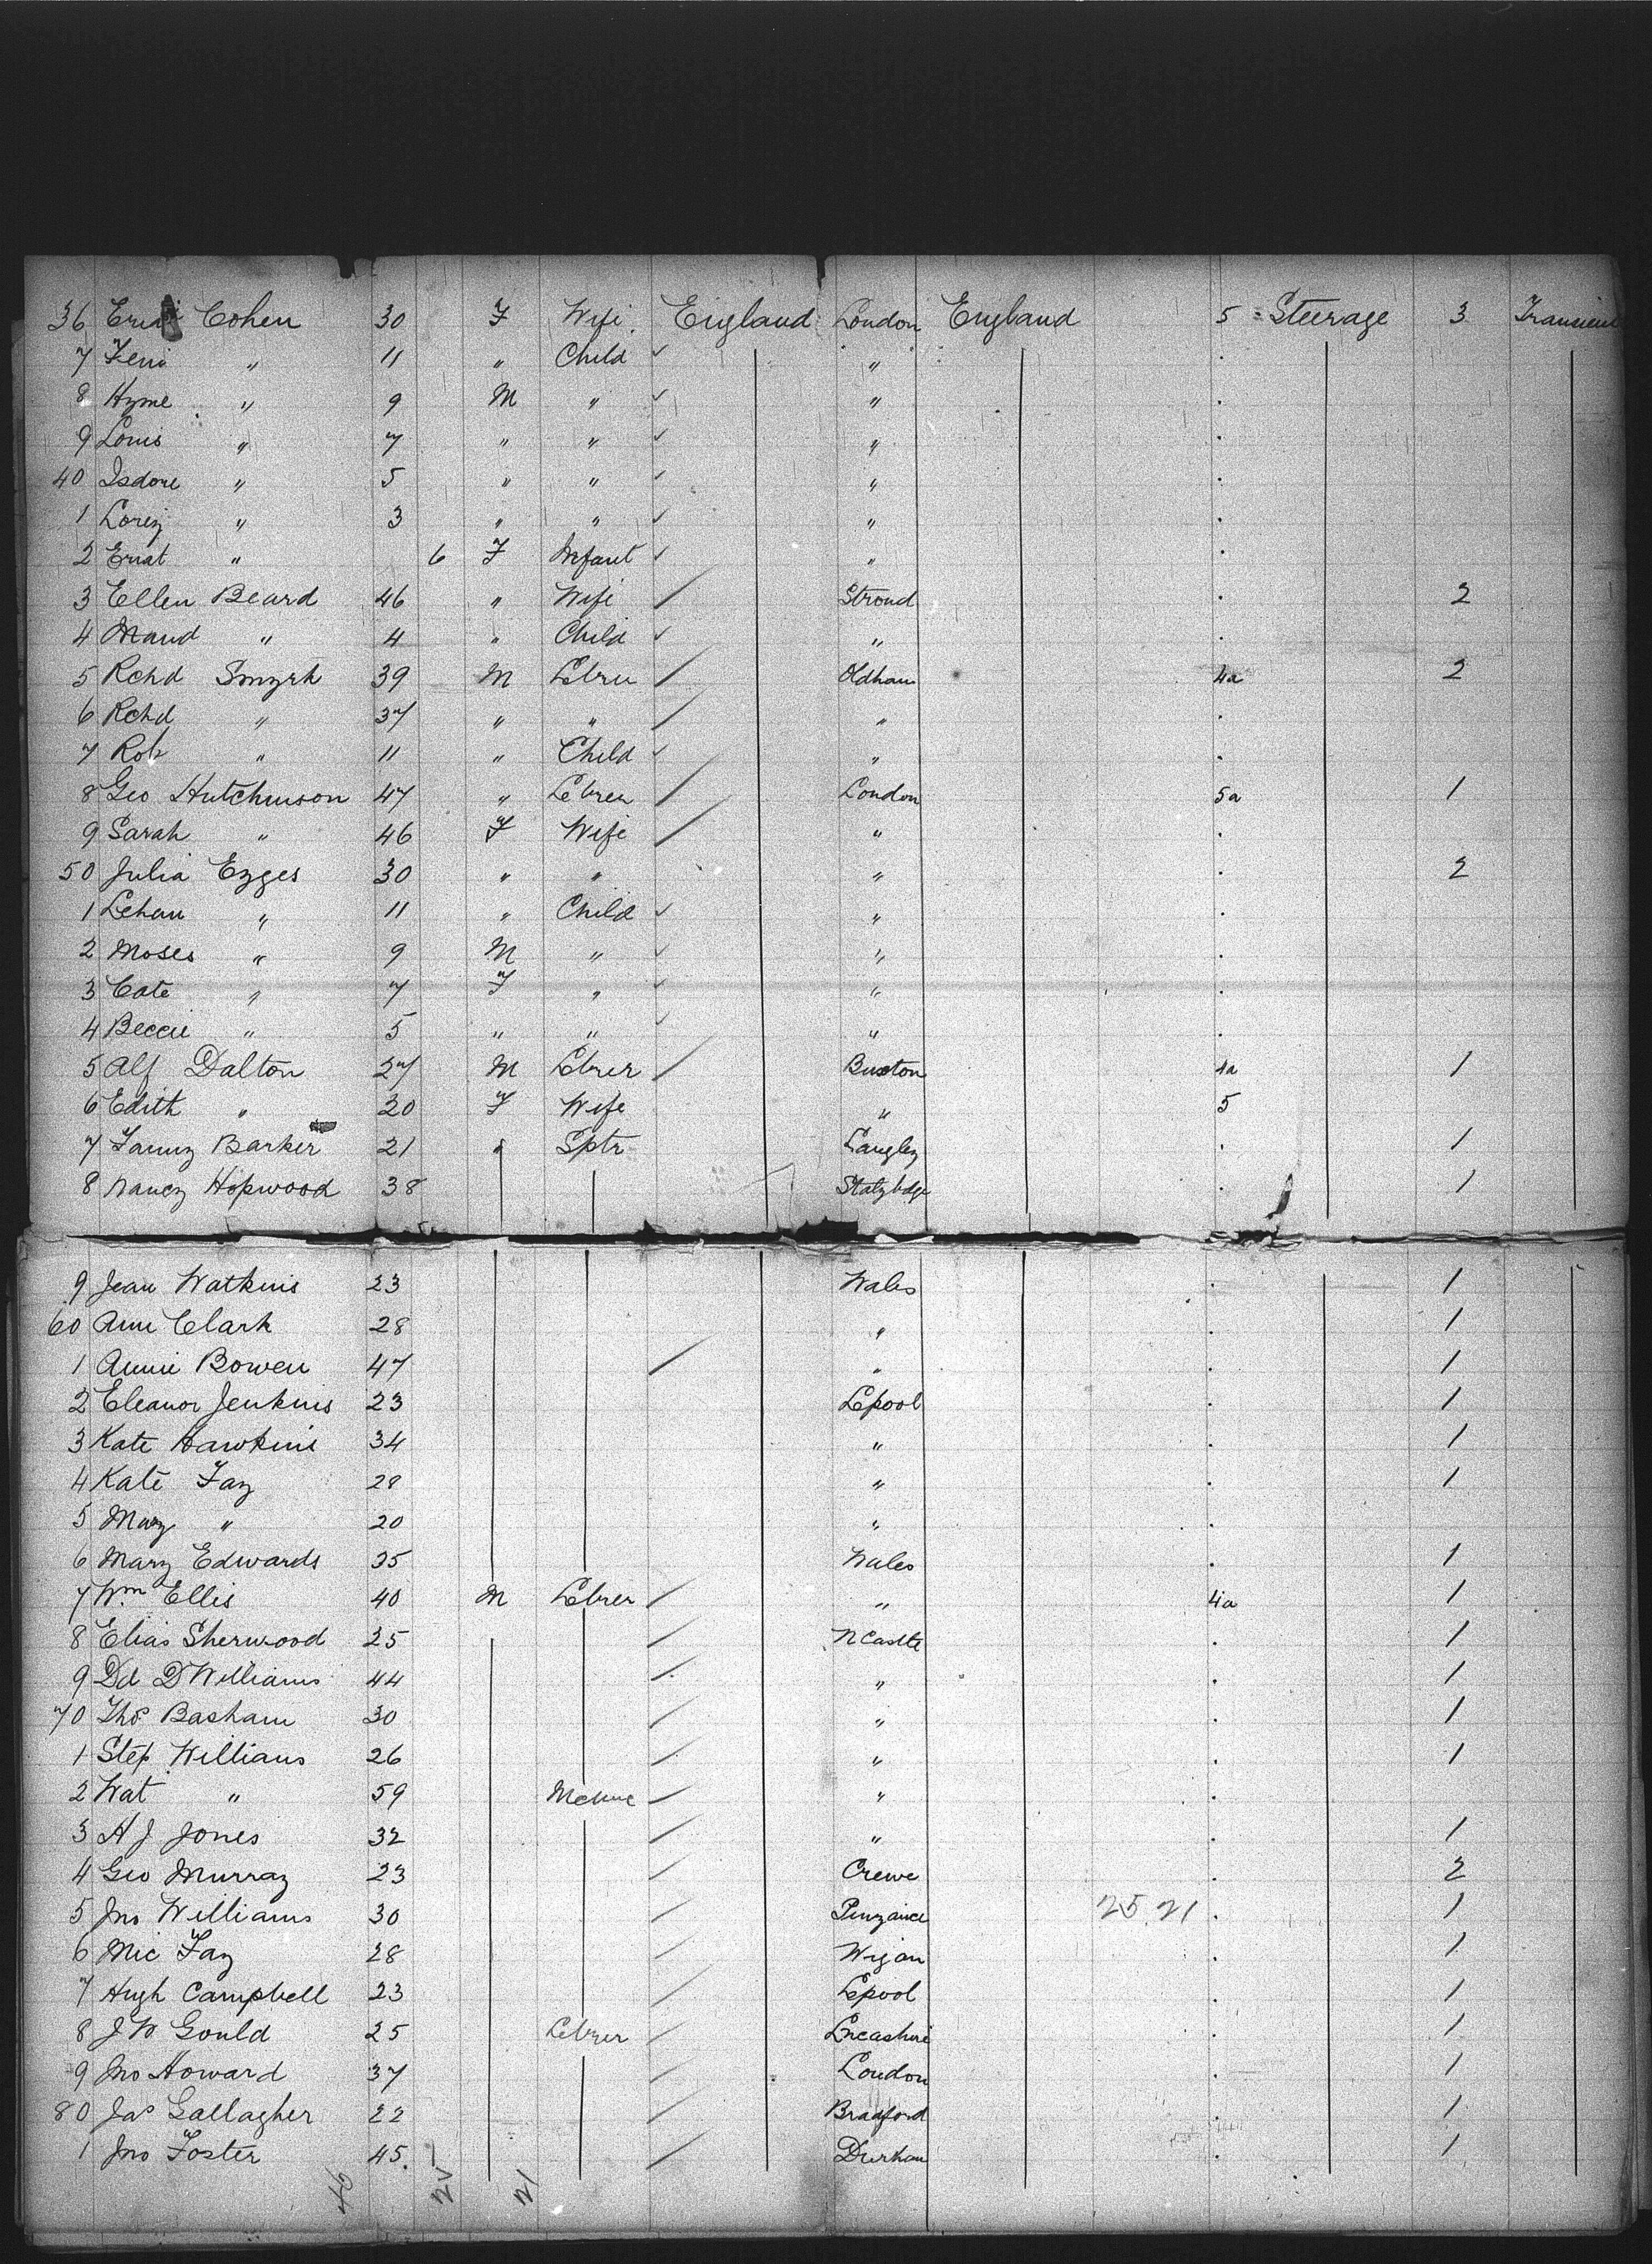 36 Cohen 30 F Wife England London England 5 Steerage 3 Transient
7 Feni " 11 " Child ✓ "
8 Hyme " 9 M " ✓ "
9 Louis " 7 " " ✓ "
40 Isdore " 5 " " ✓ "
1 " 3 " " ✓ "
2 " 6 F Infant ✓ "
3 Ellen Beard 46 " Wife / Stroud 2
4 Maud " 4 " Child ✓ "
5 Rchd Smyrk 39 M / Oldham 4a 2
6 Rchd " 37 " " / "
7 Rob " 11 " Child ✓ "
8 Geo Hutchinson 47 " Lbrer / London 5a 1
9 Sarah " 46 F Wife / "
50 Julia Ezges 30 " " " 2
1 " 11 " Child ✓ "
2 Moses " 9 M " ✓ "
3 Cate " 7 F " ✓ "
4 Beccie " 5 " " ✓ "
5 Alf Dalton 27 M Lbrer / Buxton 4a 1
6 Edith " 20 F Wife " 5
7 Fanny Barker 21 " Sptr Langley 1
8 Nancy Hopwood 38 Stalybdge 1
9 Jean Watkins 23 Wales 1
60 Ann Clark 28 " 1
1 Annie Bowen 47 / " 1
2 Eleanor Jenkins 23 Lpool 1
3 Kate Hawkins 34 " 1
4 Kate Fay 28 " 1
5 Mary " 20 "
6 Mary Edwards 35 Wales 1
7 Wm Ellis 40 M Lbrer / " 4a 1
8 Elias Sherwood 25 / NCastle 1
9 Dd D Williams 44 / " 1
70 Thos Basham 30 / " 1
1 Step Williams 26 / " 1
2 Wat " 59 / "
3 A J Jones 32 / " 1
4 Geo Murray 23 / Crewe 2
5 Jno Williams 30 / Penzance 25 21 1
6 Mic Fay 28 / Wigan 1
7 Hugh Campbell 23 / Lpool 1
8 J W Gould 25 Lbrer / Lncashire 1
9 Jno Howard 37 / London 1
80 Jas Gallagher 22 / Bradford 1
1 Jno Foster 45 / Durham 1
46 25 21